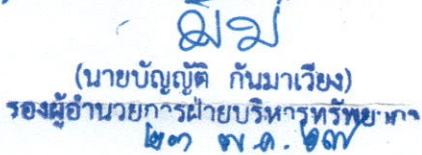 (นายบัญญัติ กันมาเวียง)
รองผู้อำนวยการฝ่ายบริหารทรัพยากร
๒๓ พ.ค. ๖๗